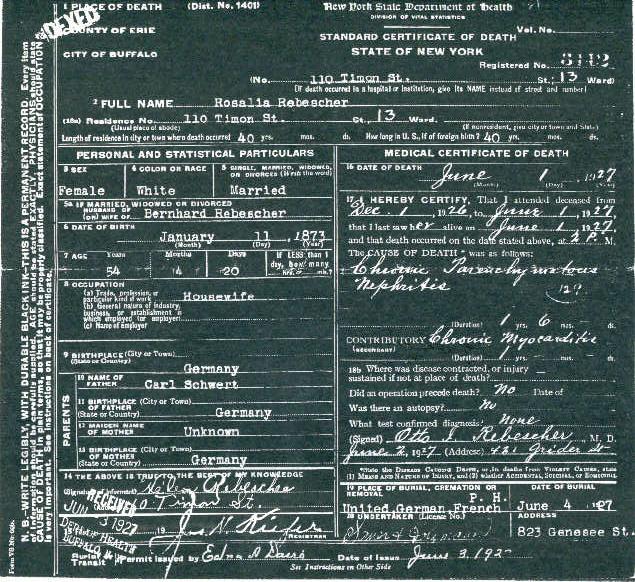 1 PLACE OF DEATH (Dist. No. 1401)
New York State Department of Health
DIVISION OF VITAL STATISTICS
COUNTY OF ERIE
STANDARD CERTIFICATE OF DEATH
Vol. No.
CITY OF BUFFALO
STATE OF NEW YORK
Registered No. 3112
(No. 110 Timon St. St.; 13 Ward)
(If death occurred in a hospital or institution, give its NAME instead of street and number)
2 FULL NAME Rosalia Rebescher
(18a) Residence No. 110 Timon St. St., 13 Ward.
(Usual place of abode) (If nonresident, give city or town and State)
Length of residence in city or town where death occurred 40 yrs. mos. ds. How long in U. S., if of foreign birth? 40 yrs. mos. ds.
PERSONAL AND STATISTICAL PARTICULARS
3 SEX
4 COLOR OR RACE
5 SINGLE, MARRIED, WIDOWED, OR DIVORCED (Write the word)
Female White Married
5a IF MARRIED, WIDOWED OR DIVORCED
HUSBAND OF
(or) WIFE OF Bernhard Rebescher
6 DATE OF BIRTH
January 11, 1873
(Month) (Day) (Year)
7 AGE Years Months Days IF LESS than 1
day, how many
54 4 20 hrs. or min.
8 OCCUPATION
(a) Trade, profession, or
particular kind of work Housewife
(b) General nature of industry,
business, or establishment in
which employed (or employer)
(c) Name of employer
9 BIRTHPLACE (City or Town)
(State or Country) Germany
PARENTS
10 NAME OF
FATHER Carl Schwert
11 BIRTHPLACE (City or Town)
OF FATHER
(State or Country) Germany
12 MAIDEN NAME
OF MOTHER Unknown
13 BIRTHPLACE (City or Town)
OF MOTHER
(State or Country) Germany
14 THE ABOVE IS TRUE TO THE BEST OF MY KNOWLEDGE
Rebescher
110 Timon St
RECEIVED
JUN 3 1927
DEPT. OF HEALTH
BUFFALO
19
REGISTRAR
MEDICAL CERTIFICATE OF DEATH
16 DATE OF DEATH
June 1 1927
(Month) (Day)
17 I HEREBY CERTIFY, That I attended deceased from
Dec. 1, 1926, to June 1 1927
that I last saw her alive on June 1 1927
and that death occurred on the date stated above, at 2 P. M.
The CAUSE OF DEATH* was as follows:
Chronic Parenchymatous
Nephritis
129
(Duration) 1 yrs. 6 mos. ds.
CONTRIBUTORY Chronic Myocarditis
(SECONDARY)
(Duration) yrs. mos. ds.
18b Where was disease contracted, or injury
sustained if not at place of death?
Did an operation precede death? No Date of
Was there an autopsy? No
What test confirmed diagnosis? None
(Signed) Otto I. Rebescher, M. D.
June 2, 1927 (Address) 421 Grider St
*State the DISEASE CAUSING DEATH, or, in deaths from VIOLENT CAUSES, state
(1) MEANS AND NATURE OF INJURY, and (2) whether ACCIDENTAL, SUICIDAL, or HOMICIDAL
19 PLACE OF BURIAL, CREMATION OR
REMOVAL P. H.
United German French
DATE OF BURIAL
June 4 1927
20 UNDERTAKER (License No.)
ADDRESS
823 Genesee St.
Burial or
Transit Permit issued by Edna A Davis Date of Issue June 3, 1927
See Instructions on Other Side
N. B.—WRITE LEGIBLY, WITH DURABLE BLACK INK—THIS IS A PERMANENT RECORD. Every item
CAUSE OF DEATH in plain terms, so that it may be properly classified. Exact statement of OCCUPATION
is very important. See instructions on back of certificate.